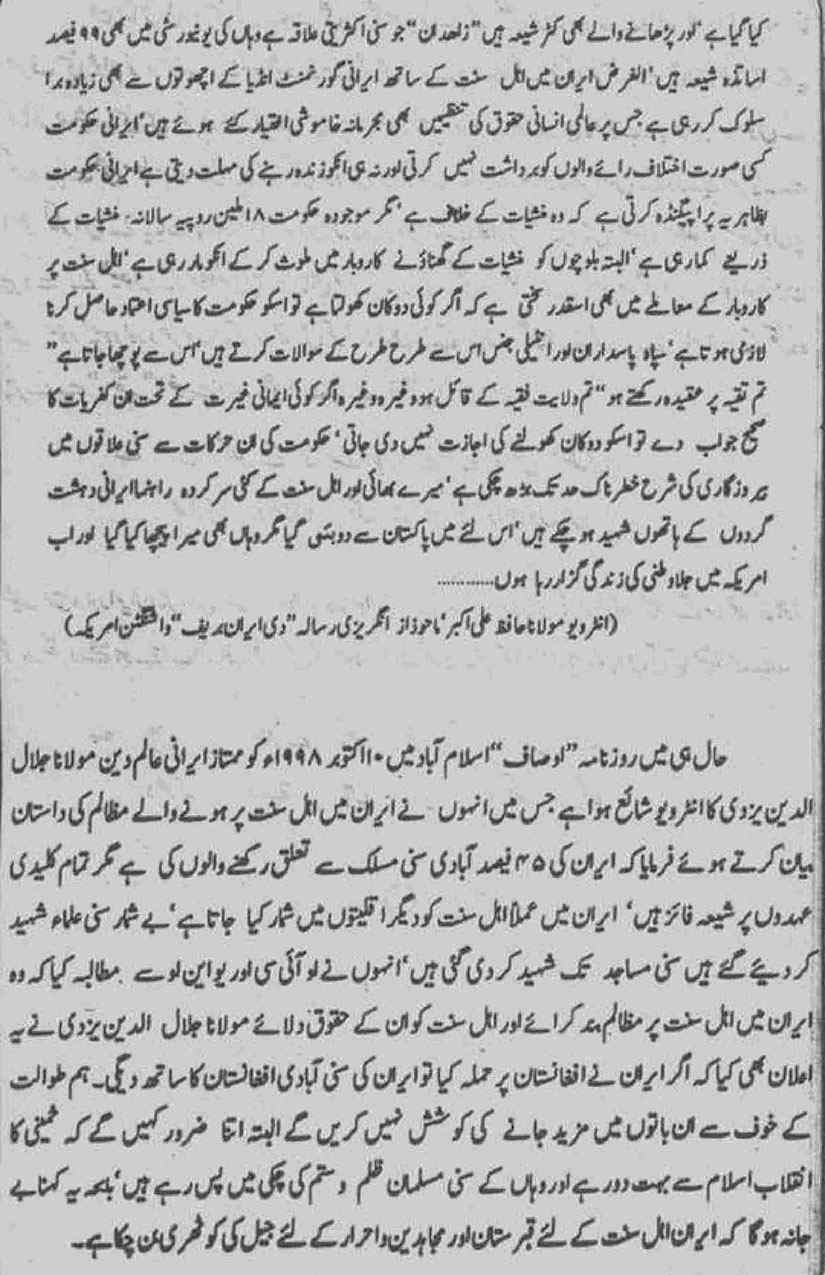 کیا گیا ہے' اور پڑھانے والے بھی کٹر شیعہ ہیں "زاھدان" جو سنی اکثریتی علاقہ ہے وہاں کی یونیورسٹی میں بھی ۹۹ فیصد
اساتذہ شیعہ ہیں' الغرض ایران میں اہل سنت کے ساتھ ایرانی گورنمنٹ انڈیا کے اچھوتوں سے بھی زیادہ برا
سلوک کر رہی ہے جس پر عالمی انسانی حقوق کی تنظیمیں بھی مجرمانہ خاموشی اختیار کئے ہوئے ہیں' ایرانی حکومت
کسی صورت اختلاف رائے والوں کو برداشت نہیں کرتی اور نہ ہی انکو زندہ رہنے کی مہلت دیتی ہے ایرانی حکومت
بظاہر یہ پراپیگنڈہ کرتی ہے کہ وہ منشیات کے خلاف ہے' مگر موجودہ حکومت ۱۸ ملین روپیہ سالانہ منشیات کے
ذریعے کما رہی ہے' البتہ بلوچوں کو منشیات کے گھناؤنے کاروبار میں ملوث کر کے انکو مار رہی ہے' اہل سنت پر
کاروبار کے معاملے میں بھی اسقدر سختی ہے کہ اگر کوئی دوکان کھولتا ہے تو اسکو حکومت کا سیاسی اعتماد حاصل کرنا
لازمی ہوتا ہے' سپاہ پاسداران اور انٹیلی جنس اس سے طرح طرح کے سوالات کرتے ہیں' اس سے پوچھا جاتا ہے"
تم تقیہ پر عقیدہ رکھتے ہو" تم ولایت فقیہ کے قائل ہو وغیرہ وغیرہ اگر کوئی ایمانی غیرت کے تحت ان کفریات کا
صحیح جواب دے تو اسکو دوکان کھولنے کی اجازت نہیں دی جاتی' حکومت کی ان حرکات سے سنی علاقوں میں
بیروزگاری کی شرح خطرناک حد تک بڑھ چکی ہے' میرے بھائی اور اہل سنت کے کئی سرکردہ راہنما ایرانی دہشت
گردوں کے ہاتھوں شہید ہو چکے ہیں' اس لئے میں پاکستان سے دوبئی گیا مگر وہاں بھی میرا پیچھا کیا گیا اور اب
امریکہ میں جلاوطنی کی زندگی گزار رہا ہوں............
(انٹرویو مولانا حافظ علی اکبر' ماخوذ از انگریزی رسالہ "دی ایران بریف" واشنگٹن امریکہ)
حال ہی میں روزنامہ "اوصاف" اسلام آباد میں ۱۰ اکتوبر ۱۹۹۸ء کو ممتاز ایرانی عالم دین مولانا جلال
الدین یزدی کا انٹرویو شائع ہوا ہے جس میں انہوں نے ایران میں اہل سنت پر ہونے والے مظالم کی داستان
بیان کرتے ہوئے فرمایا کہ ایران کی ۴۵ فیصد آبادی سنی مسلک سے تعلق رکھنے والوں کی ہے مگر تمام کلیدی
عہدوں پر شیعہ فائز ہیں' ایران میں عملاً اہل سنت کو دیگر اقلیتوں میں شمار کیا جاتا ہے' بے شمار سنی علماء شہید
کر دیئے گئے ہیں سنی مساجد تک شہید کر دی گئی ہیں' انہوں نے او آئی سی اور یو این او سے مطالبہ کیا کہ وہ
ایران میں اہل سنت پر مظالم بند کرائے اور اہل سنت کو ان کے حقوق دلائے مولانا جلال الدین یزدی نے یہ
اعلان بھی کیا کہ اگر ایران نے افغانستان پر حملہ کیا تو ایران کی سنی آبادی افغانستان کا ساتھ دیگی۔ ہم طوالت
کے خوف سے ان باتوں میں مزید جانے کی کوشش نہیں کریں گے البتہ اتنا ضرور کہیں گے کہ خمینی کا
انقلاب اسلام سے بہت دور ہے اور وہاں کے سنی مسلمان ظلم و ستم کی چکی میں پس رہے ہیں' بلکہ یہ کہنا بے
جا نہ ہوگا کہ ایران اہل سنت کے لئے قبرستان اور مجاہدین و احرار کے لئے جیل کی کوٹھری بن چکا ہے۔